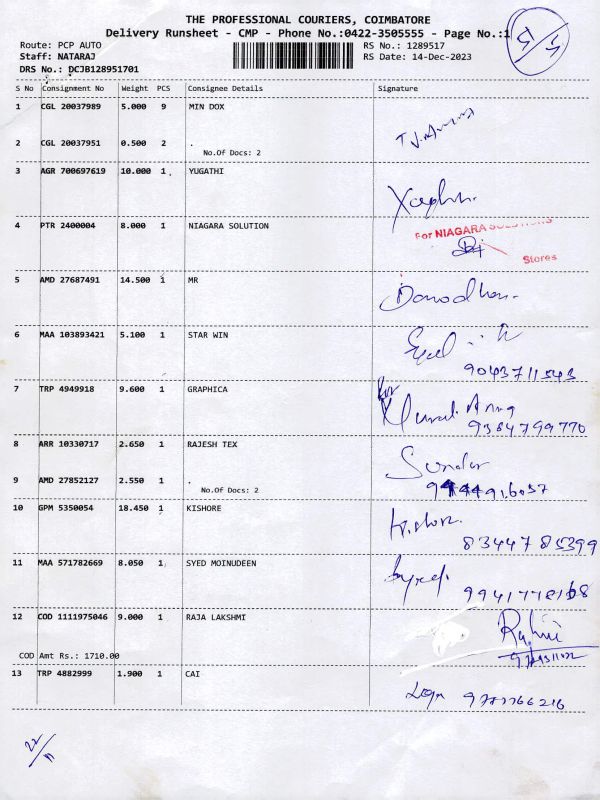 THE PROFESSIONAL COURIERS, COIMBATORE
Delivery Runsheet - CMP - Phone No.:0422-3505555 - Page No.:1
Route: PCP AUTO RS No.: 1289517
Staff: NATARAJ RS Date: 14-Dec-2023
DRS No.: DCJB128951701
S No Consignment No Weight PCS Consignee Details Signature
1 CGL 20037989 5.000 9 MIN DOX
2 CGL 20037951 0.500 2 .
No.Of Docs: 2
3 AGR 700697619 10.000 1 YUGATHI
4 PTR 2400004 8.000 1 NIAGARA SOLUTION
For NIAGARA SOLUTIONS
Stores
5 AMD 27687491 14.500 1 MR
Damodhan
6 MAA 103893421 5.100 1 STAR WIN
9043711543
7 TRP 4949918 9.600 1 GRAPHICA
for
9364799770
8 ARR 10330717 2.650 1 RAJESH TEX
Sundar
9 AMD 27852127 2.550 1 .
No.Of Docs: 2
10 GPM 5350054 18.450 1 KISHORE
Kishor
8344785399
11 MAA 571782669 8.050 1 SYED MOINUDEEN
Syed
12 COD 1111975046 9.000 1 RAJA LAKSHMI
COD Amt Rs.: 1710.00
13 TRP 4882999 1.900 1 CAI